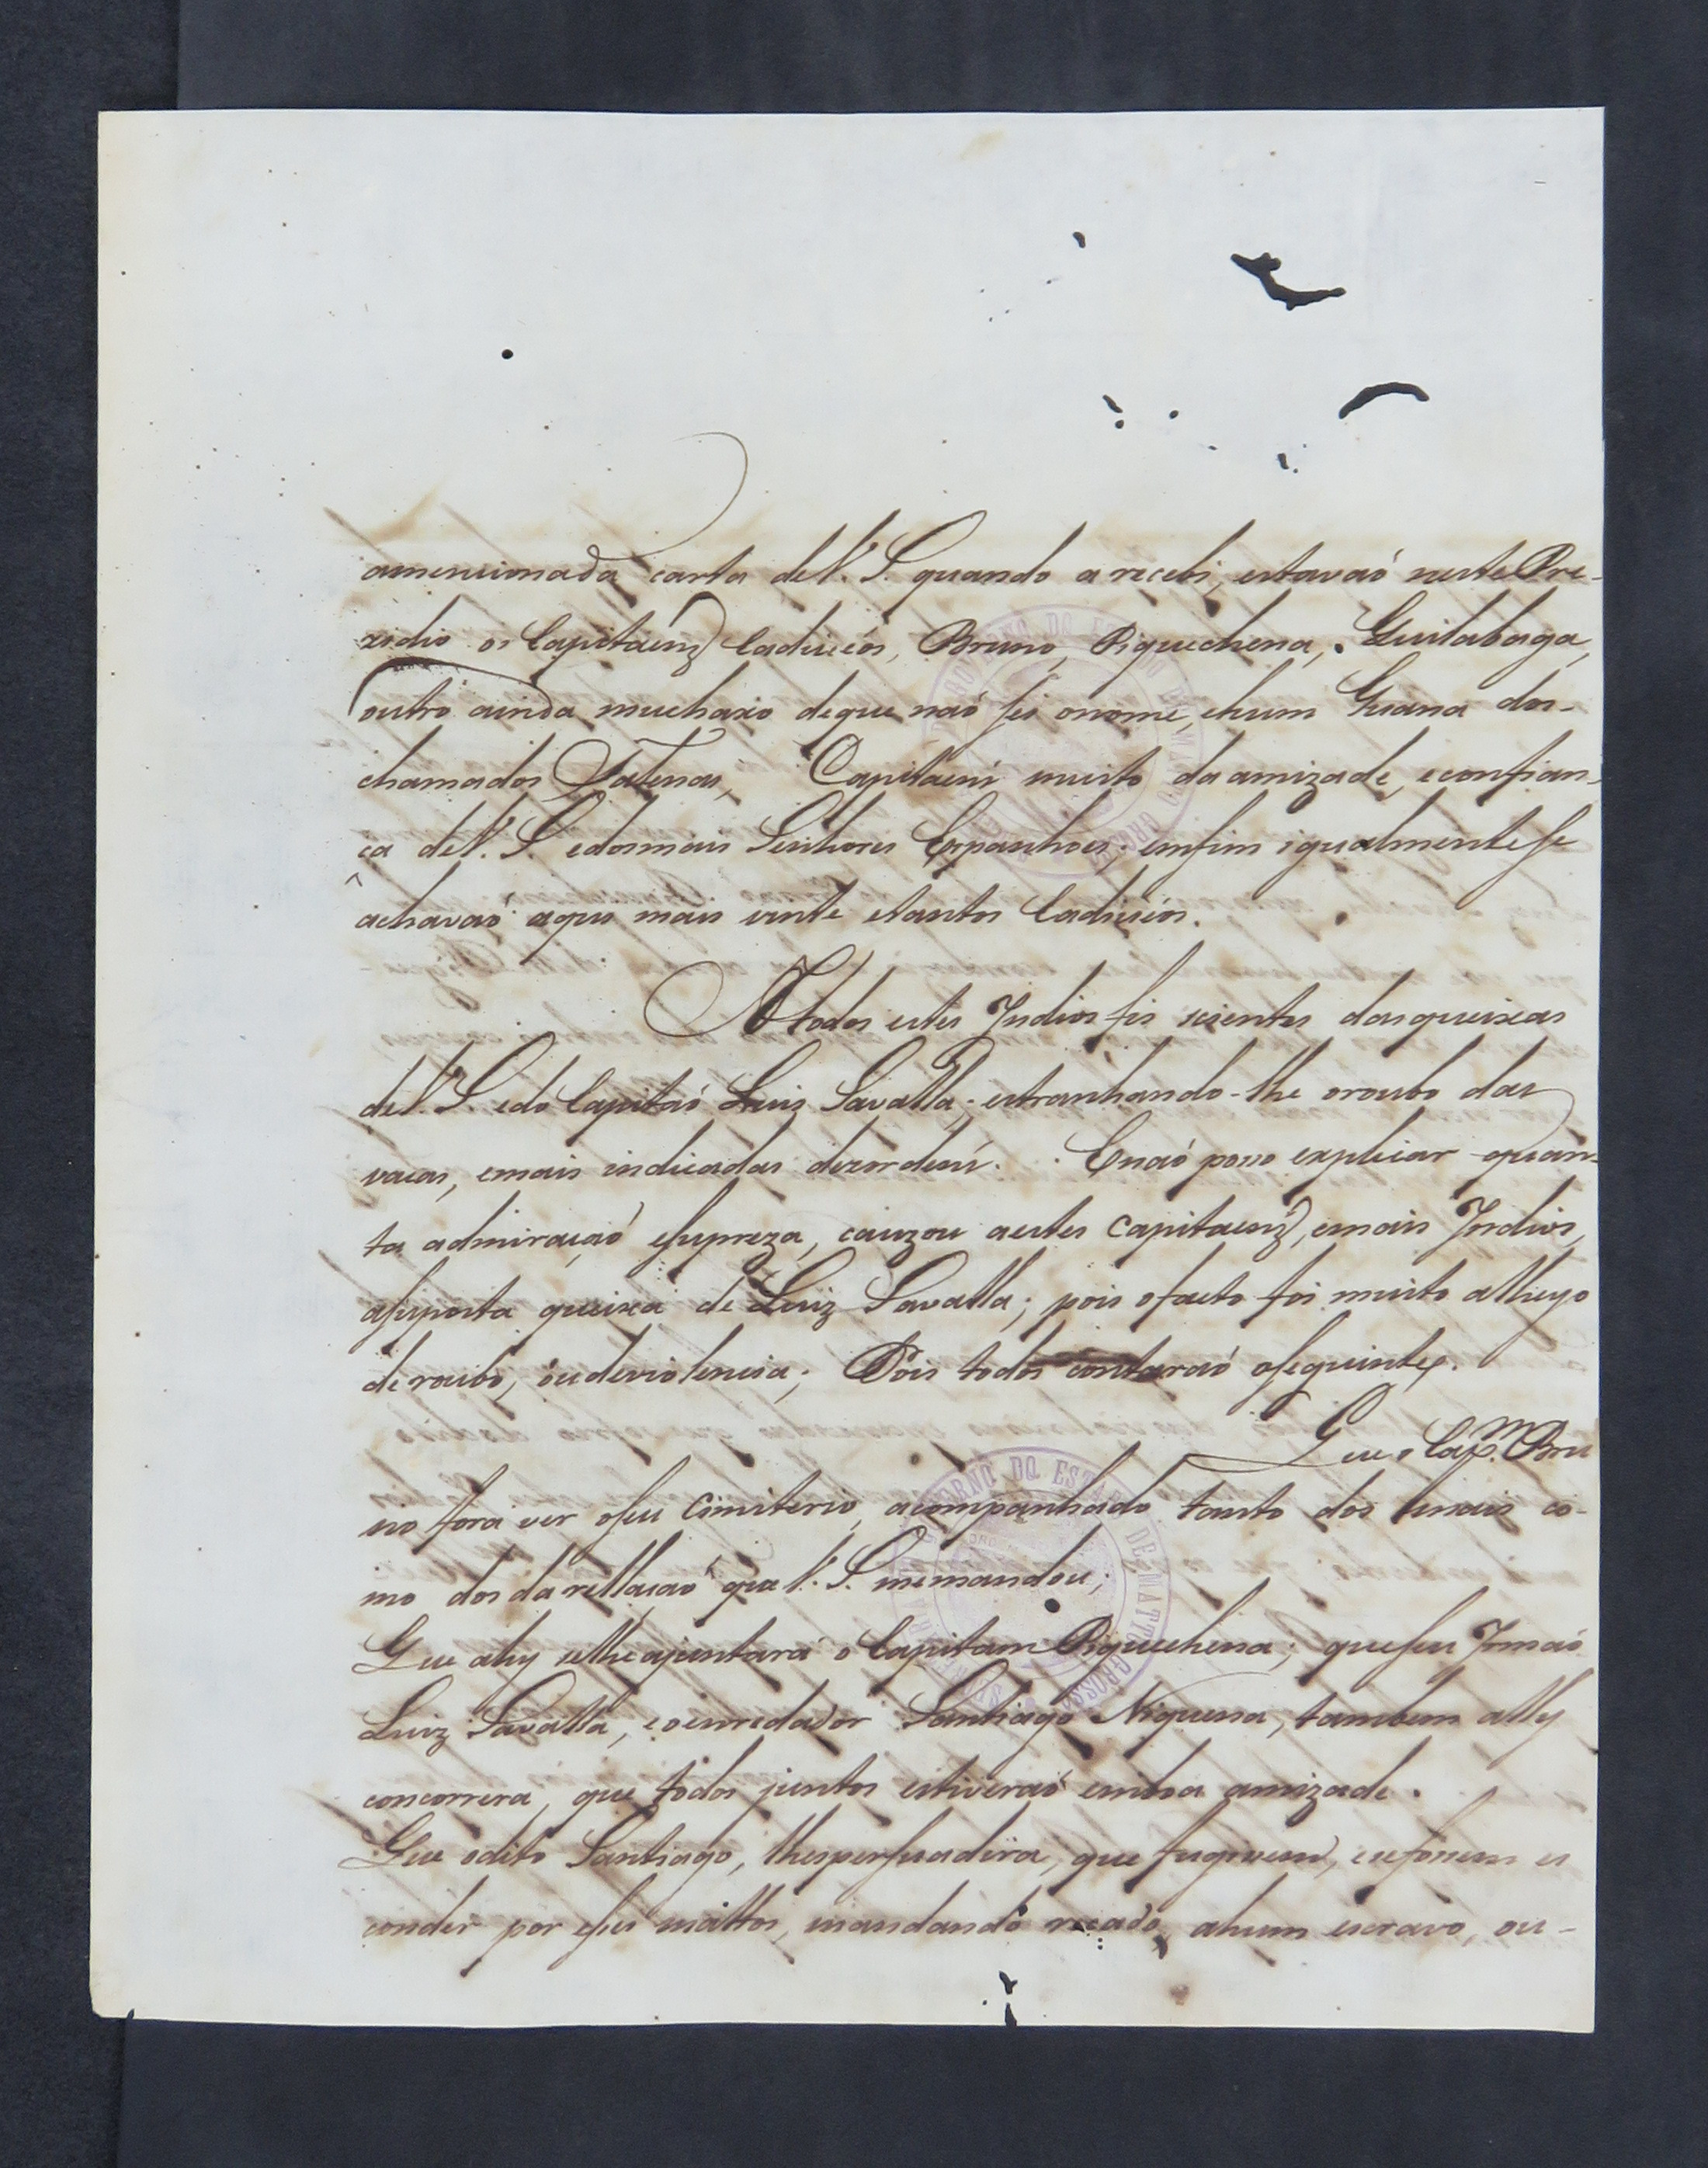 amencionada carta deV. S. quando a recebi, estavaó nestePre-
zidio os Capitaens Cadiueos, Bruno, Piquechena, Quilabaga,
outro ainda muchaxo deque naó sei onome, ehum Guana dos-
chamados Catenas, Capitaens muito da amizade, econfian-
ça deV. S. edosmais Senhores Espanhoes. emfim igualmentese
achavaó aqui mais vinte etantos Cadiueos.
A todos estes Indios fis scientes dasqueixas
deV. S. edo Capitaó Luis Savalla; estranhando-lhe oroubo das
vacas, emais indicadas dezordens. Enaó posso explicar quan-
ta admiraçaó esupreza, cauzou aestes Capitaens, emais Indios,
asuposta queixa de Luiz Savalla; pois ofacto foi muito alheyo
deroubo, oudeviolencia; Pois todos contaraó oseguinte.
Que o Capm. Bru
no fora ver oseu Cimiterio, acompanhado tanto dos mais co-
mo dos darellaçaó que V. S. memandou;
Que ahy selheajuntara o Capitam Piquechena; queseu Irmaó
Luiz Savalla, eoenredador Santiago Niquena, tambem ally
concorrera, que todos juntos estiveraó emboa amizade.
Que odito Santiago, lhespersuadira, que fugissem, esefossem es
conder por esses mattos, mandando recado, ahum escravo, ou-
GOVERNO DO ESTADO DE MATTO GROSSO
GOVERNO DO ESTADO DE MATTO GROSSO